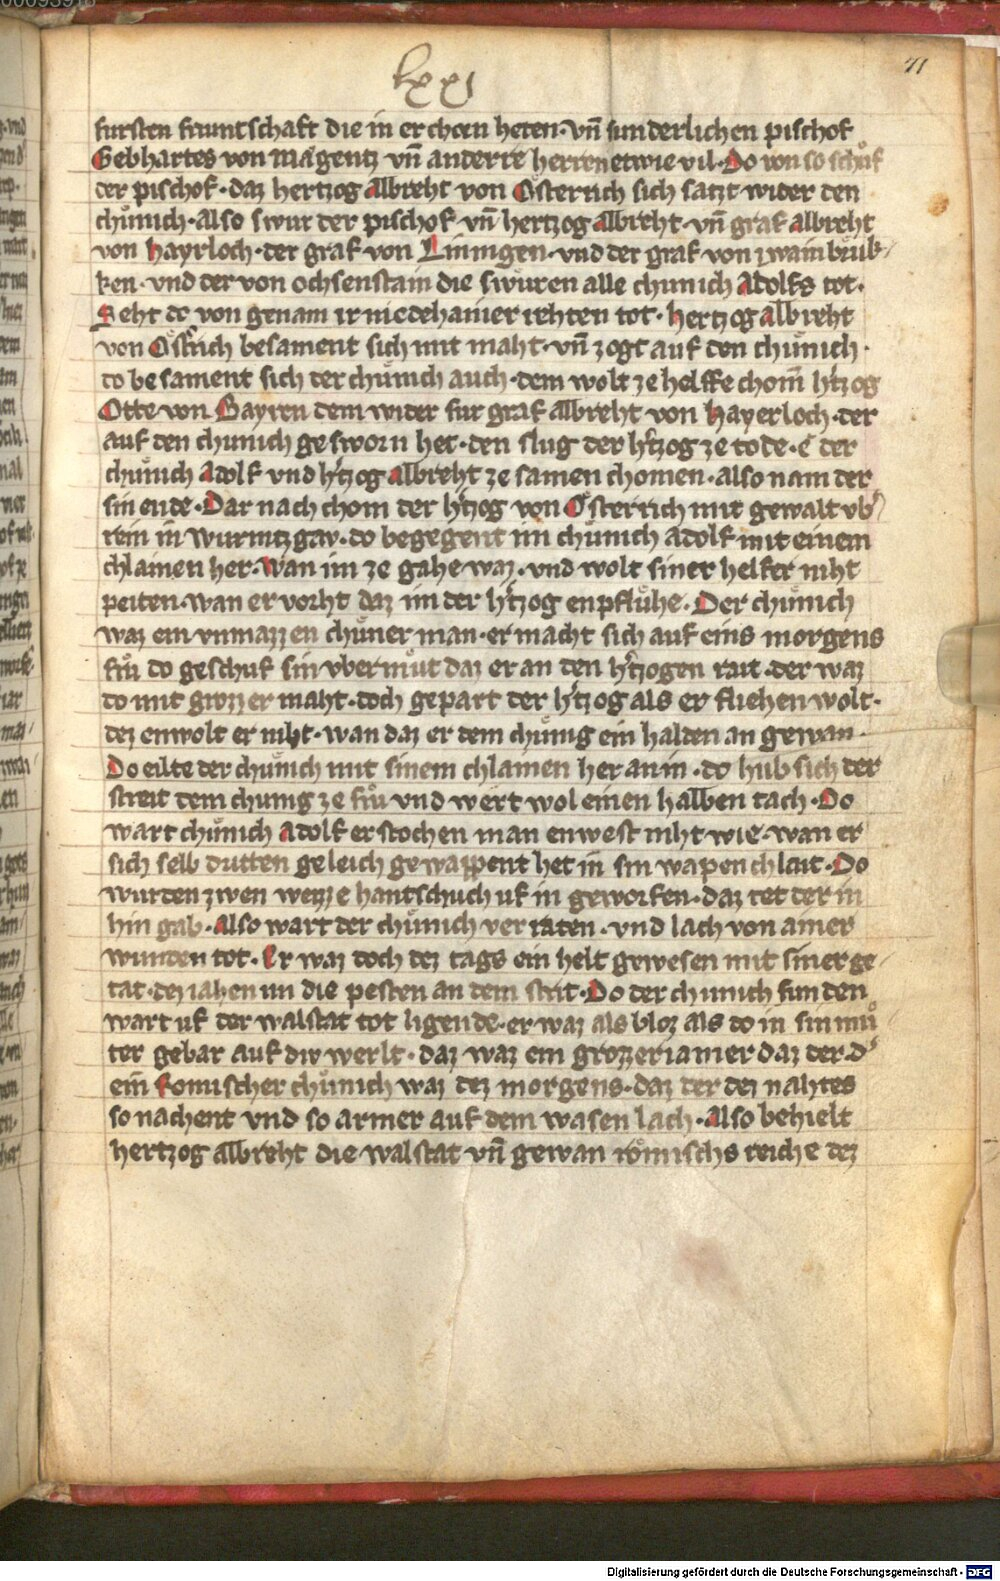 lxxi
71
fursten fruntschaft die in erchoen heten · vn̄ sunderlichen pischof
Gebhartes von Magentz vn̄ anderre herren etwie vil · Do von so schůf
der pischof · daz hertzog Albreht von Osterrich sich satzt wider den
chůnich · also swůr der pischof vn̄ hertzog Albreht · vn̄ graf Albreht
von Hayrloch · der graf von Liningen · vnd der graf von zwainbruk-
ken · vnd der von ochsenstain die swůren alle chunich Adolfs tot ·
Seht do von genam ir niedehainer rehten tot · hertzog Albreht
von Ostrich besament sich mit maht · vn̄ zogt auf den chůnich ·
do besament sich der chůnich auch · dem wolt ze helffe chom̄ htzog
Otte von Bayren dem wider fur graf Albreht von Hayerloch · der
auf den chunich gesworn het · den slug der htzog ze tode · e der
chůnich Adolf vnd htzog Albreht ze samen chomen · also nam der
sin ende · Dar nach chom der htzog von Osterrich mit gewalt vb
rein in wurmtzgav · do begegent im chůnich Adolf mit einem
chlainen her · wan im ze gahe waz · vnd wolt siner helfer niht
peiten · wan er vorht daz im der htzog enpflůhe · Der chůnich
waz ein vnmazzen chůner man · er macht sich auf eins morgens
frů do geschuf sin vbermůt daz er an den htzogen rait · der waz
do mit grozzer maht · doch gepart der htzog als er fliehen wolt ·
dez enwolt er niht · wan daz er dem chunig ein halden an gewan ·
Do eilte der chůnich mit sinem chlainen her an in · do hub sich der
streit dem chunig ze frů vnd wert wol einen halben tach · Do
wart chůnich Adolf erstochen man enwest niht wie · wan er
sich selb dritten geleich gewappent het in sin wapenchlait · Do
wurden zwen wezze hantschuch uf in geworfen · daz tet der in
hin gab · Also wart der chůnich verraten · vnd lach von ainer
wunden tot · Er waz doch dez tags ein helt gewesen mit siner ge-
tat · dez iahen im die pesten an dem strit · Do der chunich funden
wart uf der walstat tot ligende · er waz als bloz als do in sin mů
ter gebar auf div werlt · daz waz ein grozzer iamer daz der · d
ein Romischer chůnich waz dez morgens · daz der dez nahtes
so nachent vnd so armer auf dem wasen lach · Also behielt
hertzog Albreht die walstat vn̄ gewan römischs reiche dez
Digitalisierung gefördert durch die Deutsche Forschungsgemeinschaft · DFG